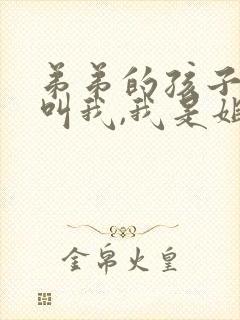 弟弟的孩子
叫我,我是姐
金帛火皇